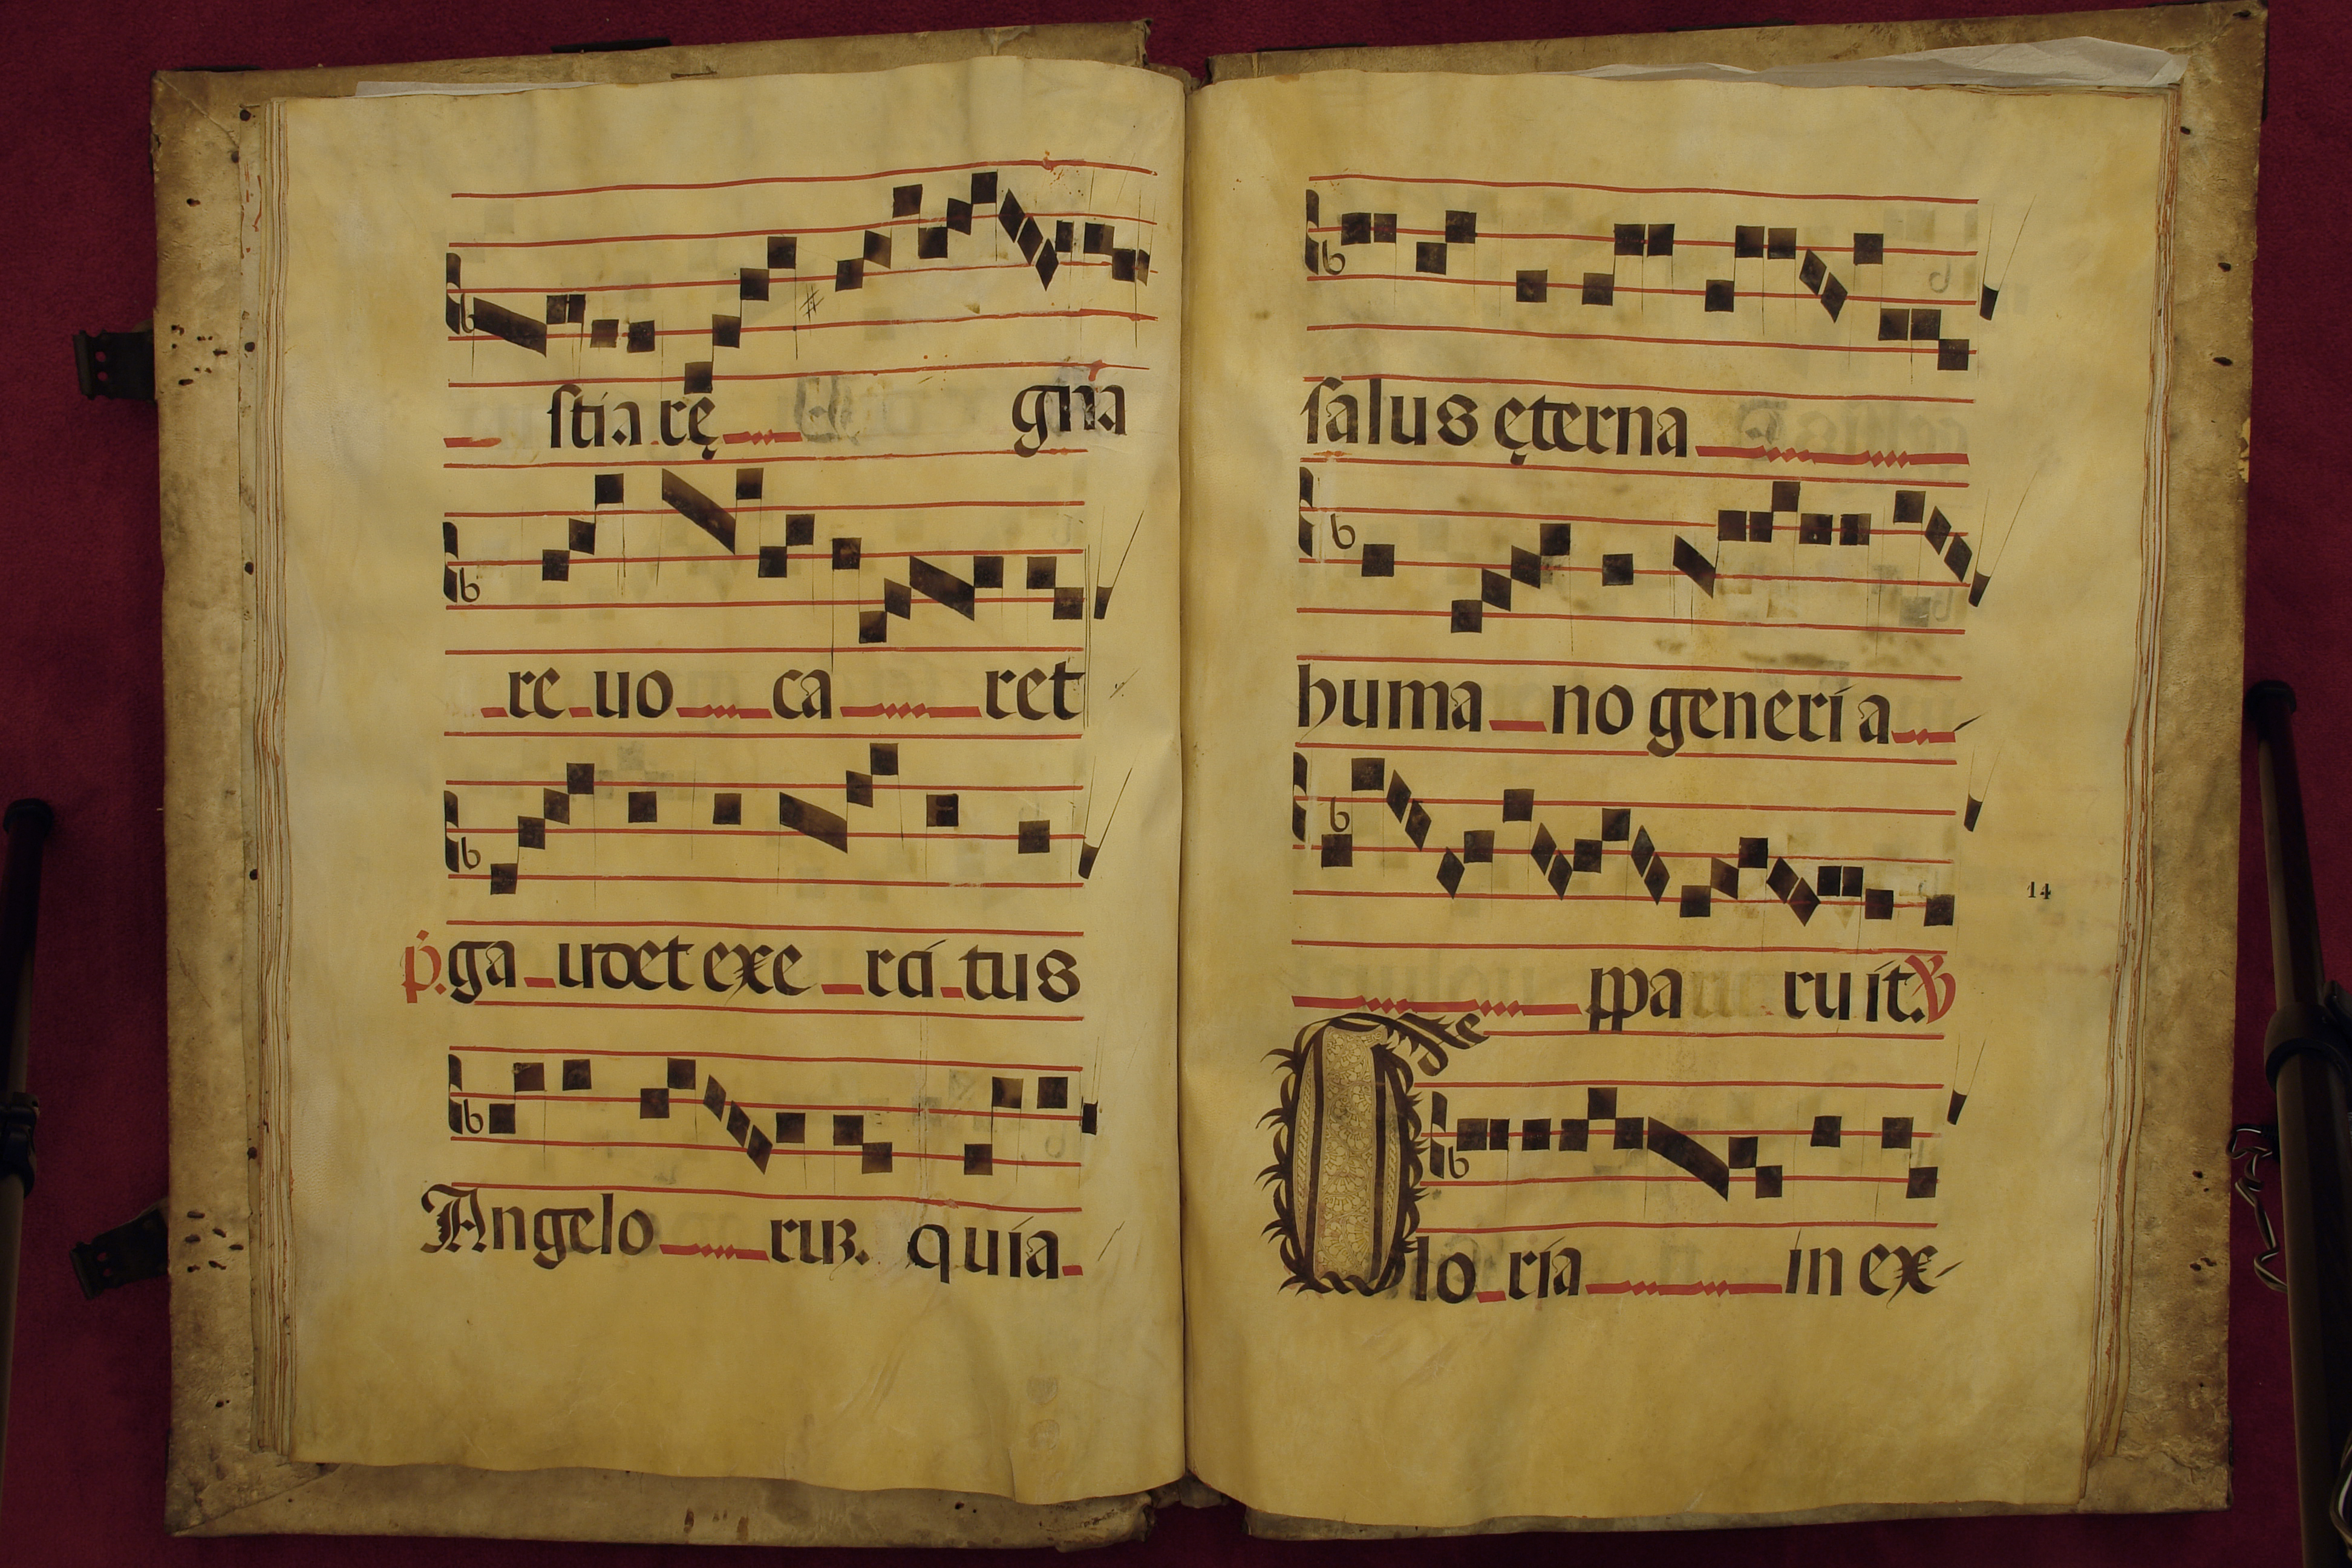 stia rę gna
re uo ca ret
p. ga udet exe rci tus
Angelo rum. quia
salus ęterna
huma no generi a
ppa ruit. V
14
Glo ria in ex